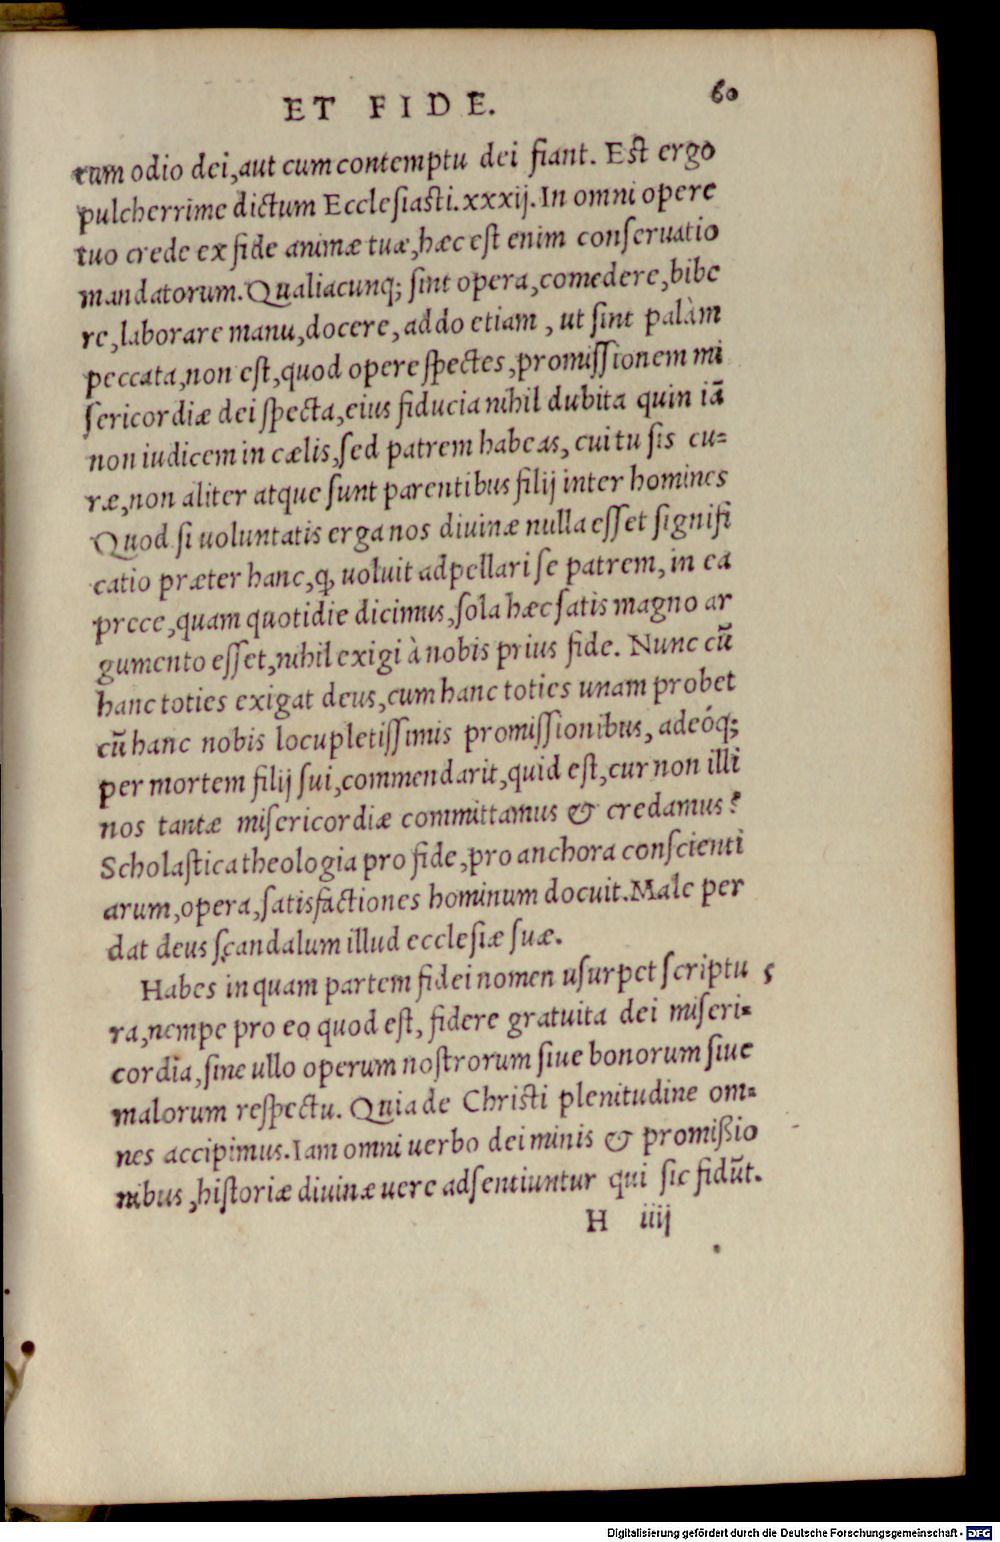 ET FIDE. 60
cum odio dei, aut cum contemptu dei fiant. Est ergo
pulcherrime dictum Ecclesiasti. xxxij. In omni opere
tuo crede ex fide animæ tuæ, hæc est enim conseruatio
mandatorum. Qualiacunq; sint opera, comedere, bibe
re, laborare manu, docere, addo etiam, ut sint palàm
peccata, non est, quod opere spectes, promissionem mi
sericordiæ dei specta, eius fiducia nihil dubita quin iā
non iudicem in cælis, sed patrem habeas, cui tu sis cu-
ræ, non aliter atque sunt parentibus filij inter homines
Quod si uoluntatis erga nos diuinæ nulla esset signifi
catio præter hanc, ꝙ uoluit adpellari se patrem, in ea
prece, quam quotidie dicimus, sola hæc satis magno ar
gumento esset, nihil exigi à nobis prius fide. Nunc cū
hanc toties exigat deus, cum hanc toties unam probet
cū hanc nobis locupletissimis promissionibus, adeóq;
per mortem filij sui, commendarit, quid est, cur non illi
nos tantæ misericordiæ committamus & credamus?
Scholastica theologia pro fide, pro anchora conscienti
arum, opera, satisfactiones hominum docuit. Male per
dat deus scandalum illud ecclesiæ suæ.
Habes in quam partem fidei nomen usurpet scriptu 5
ra, nempe pro eo quod est, fidere gratuita dei miseri-
cordia, sine ullo operum nostrorum siue bonorum siue
malorum respectu. Quia de Christi plenitudine om-
nes accipimus. Iam omni uerbo dei minis & promißio
nibus, historiæ diuinæ uere adsentiuntur qui sic fidūt.
H iiij
Digitalisierung gefördert durch die Deutsche Forschungsgemeinschaft - DFG